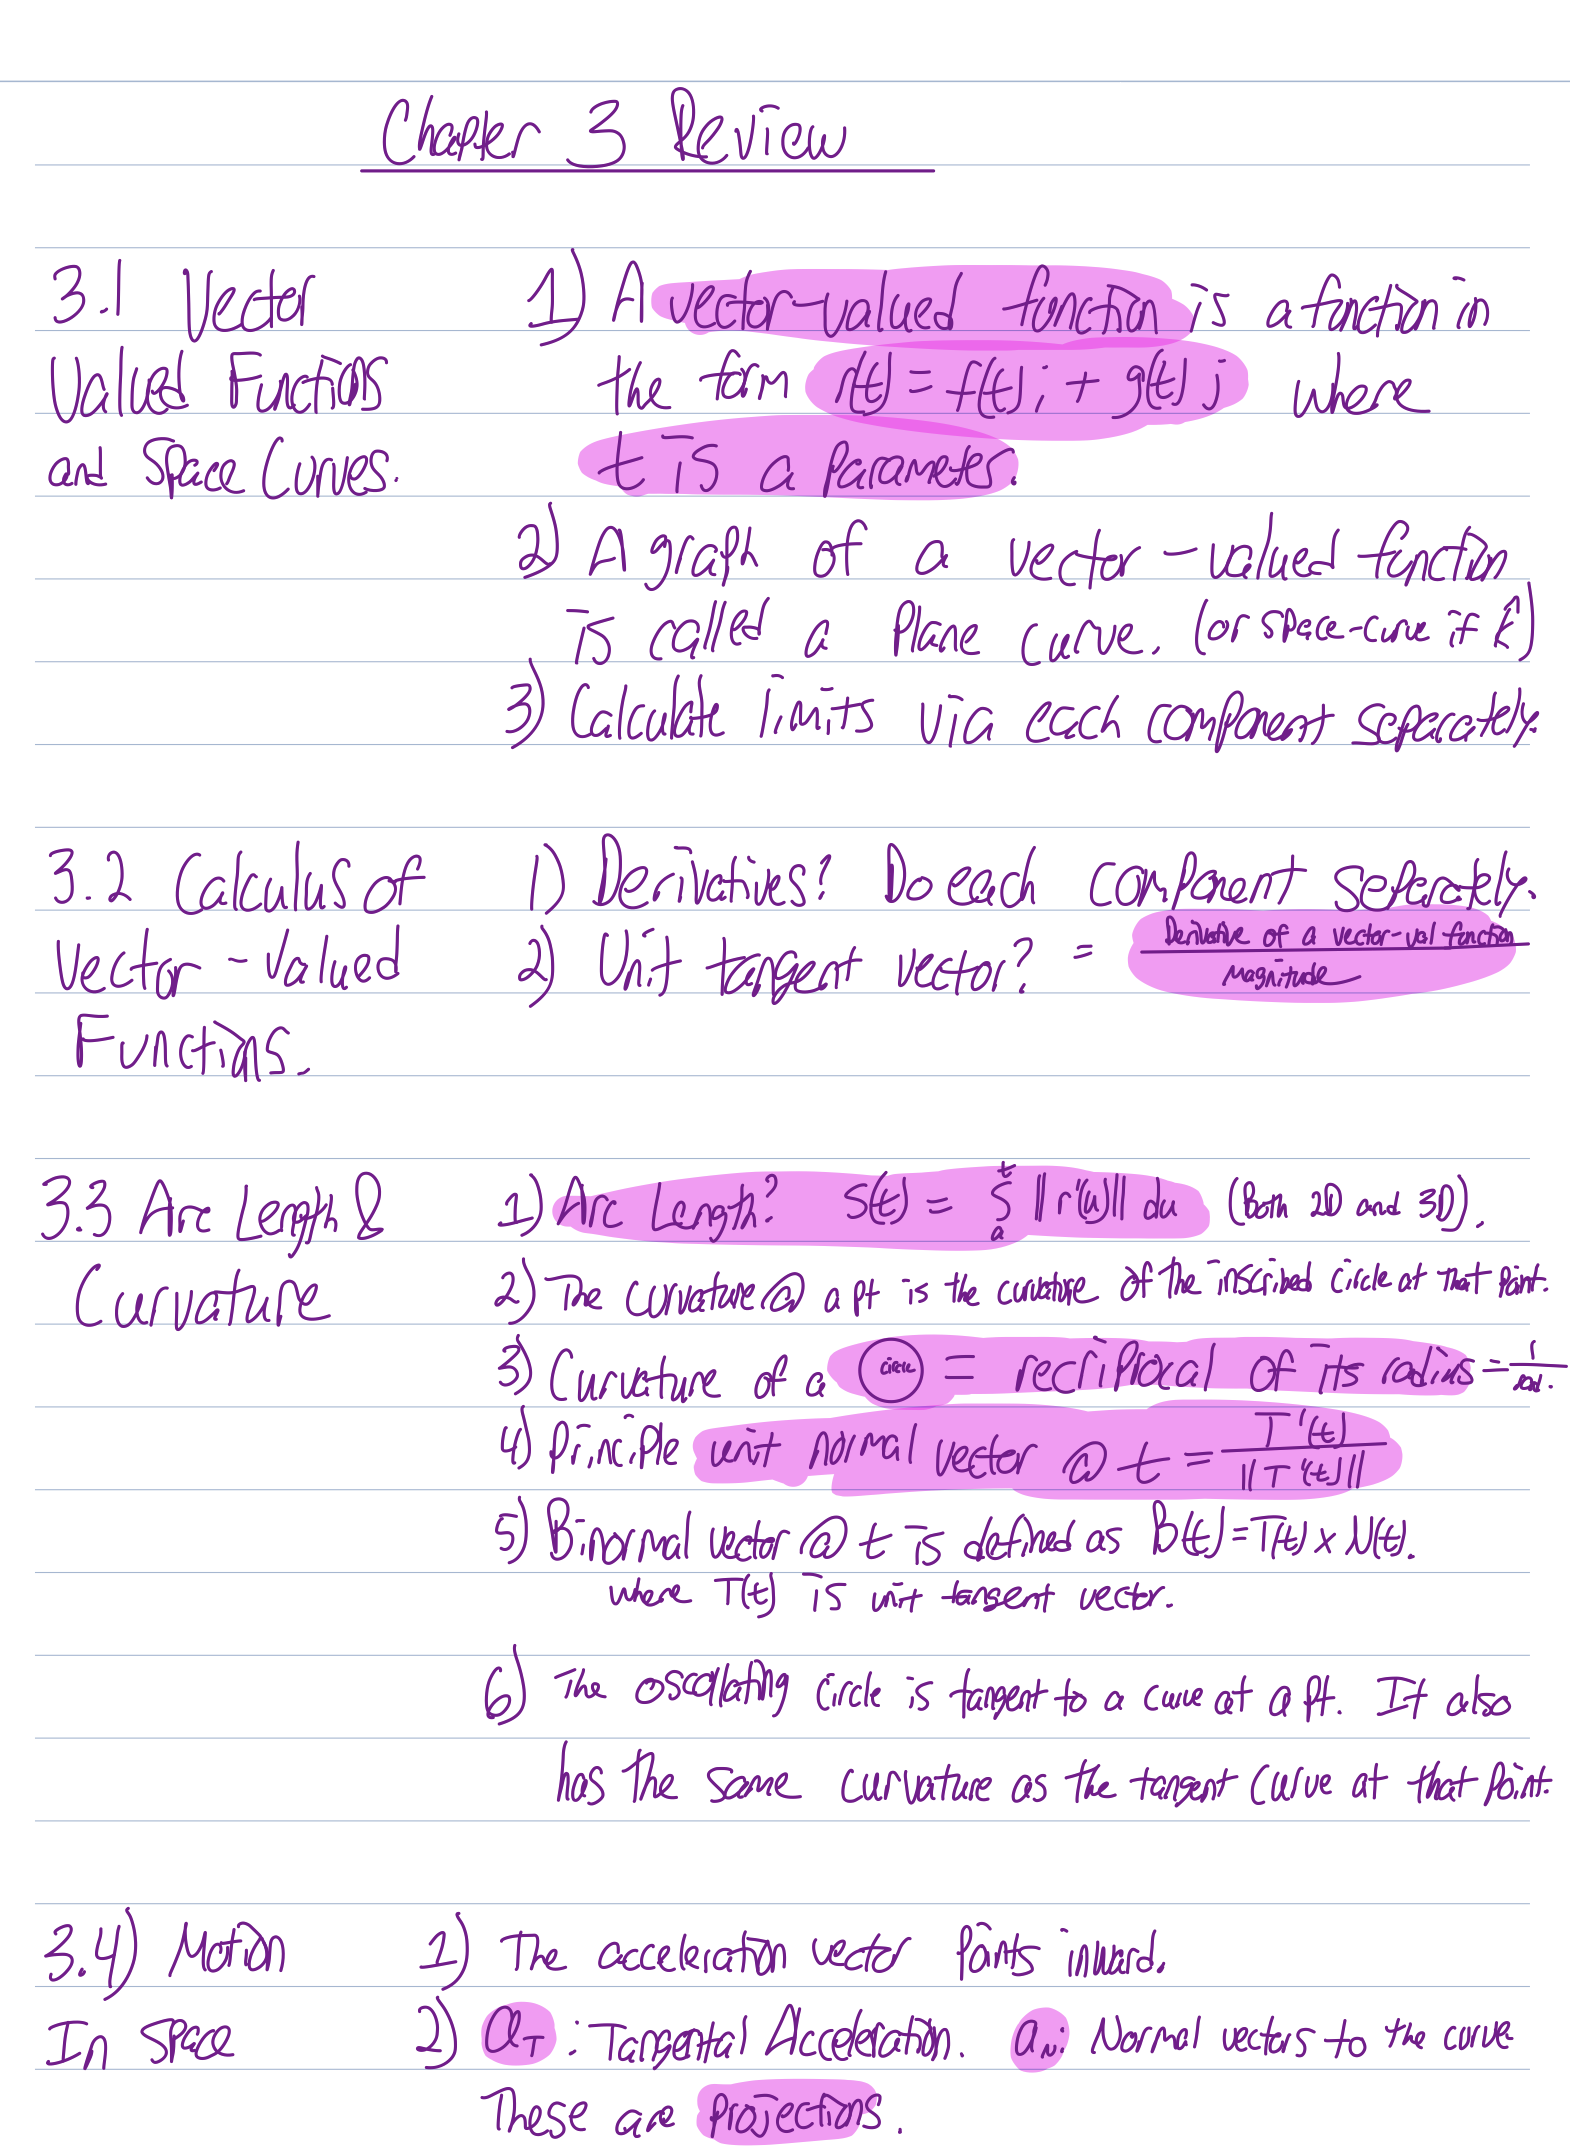 Chapter 3 Review
3.1 Vector
Valued Functions
and Space Curves.
1) A vector-valued function is a function in
the form r(t) = f(t)i + g(t)j where
t is a parameter.
2) A graph of a vector-valued function
is called a plane curve. (or space-curve if k̂)
3) Calculate limits via each component separately.
3.2 Calculus of
Vector-Valued
Functions.
1) Derivatives? Do each component seperately.
2) Unit tangent vector? = Derivative of a vector-val function
Magnitude
3.3 Arc Length &
Curvature
1) Arc Length? S(t) = ∫ₐᵗ ||r'(u)|| du (Both 2D and 3D).
2) The curvature @ a pt is the curvature of the inscribed circle at that point.
3) Curvature of a circle = recriprocal of its radius = 1/rad.
4) Principle unit normal vector @ t = T'(t)/||T'(t)||
5) Binormal vector @ t is defined as B(t) = T(t) x N(t).
where T(t) is unit tangent vector.
6) The oscollating circle is tangent to a curve at a pt. It also
has the same curvature as the tangent curve at that point.
3.4) Motion
In Space
1) The acceleration vector points inward.
2) a_T : Tangental Acceleration. a_N: Normal vectors to the curve
These are projections.